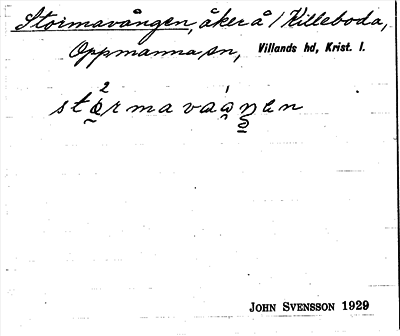 Stormavången, åker å / Killeboda,
Oppmanna sn, Villands hd, Krist. l.
JOHN SVENSSON 1929